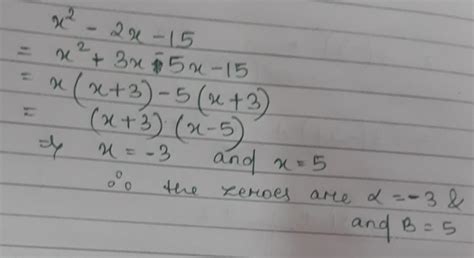 x² - 2x - 15
= x² + 3x - 5x - 15
= x(x+3) - 5(x+3)
= (x+3) (x-5)
⇒ x = -3 and x = 5
∴ the zeroes are α = -3 &
and β = 5